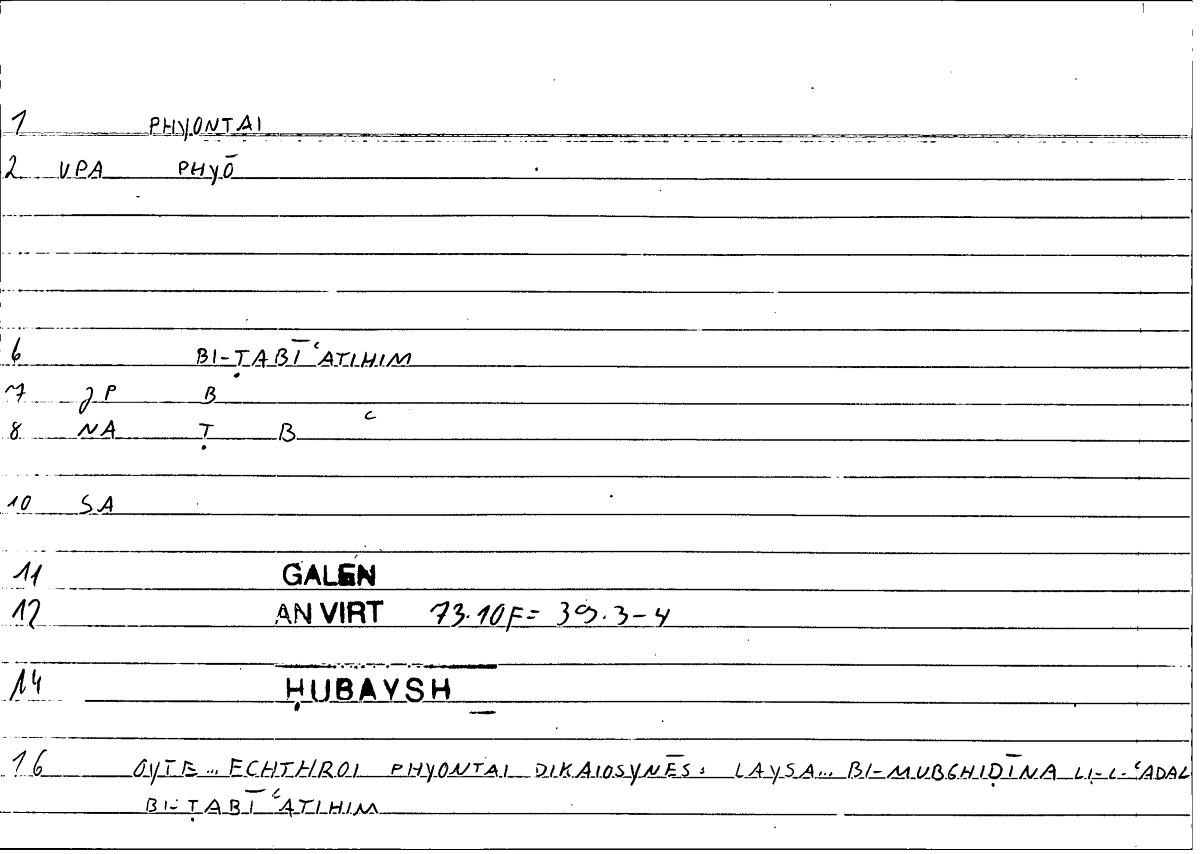 1 PHYONTAI
2 VPA PHYŌ
6 BI-ṬABĪʿATIHIM
7 JP B
8 NA Ṭ B ʿ
10 SA
11 GALEN
12 AN VIRT 73.10F= 39.3-4
14 ḤUBAYSH
16 OYTE... ECHTHROI PHYONTAI DIKAIOSYNĒS: LAYSA... BI-MUBGHIḌĪNA LI-L-ʿADAL
BI-ṬABĪʿATIHIM